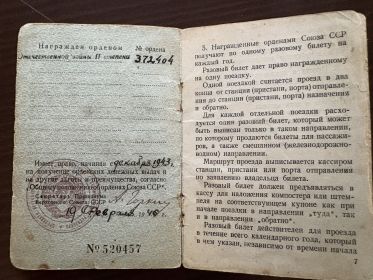 Награжден орденом № ордена
Отечественной войны II степени 372404
Имеет право, начиная с декабря 1943,
на получение орденских денежных выдач и
на другие льготы и преимущества, согласно
Общему положению об орденах Союза ССР.
Секретарь Президиума
Верховного Совета СССР
19 февраля 1946 г.
№ 520457
3. Награжденные орденами Союза ССР
получают по одному разовому билету на
каждый год.
Разовый билет дает право награжденному
на одну поездку.
Одной поездкой считается проезд в два
конца от станции (пристани, порта) отправле-
ния до станции (пристани, порта) назначения
и обратно.
Для каждой отдельной поездки расхо-
дуется один разовый билет, который может
быть выписан только в таком направлении,
по которому продаются билеты для пассажи-
ров, а также смешанном (железнодорожно-
водном) направлении.
Маршрут проезда выписывается кассиром
станции, пристани или порта по устному
заявлению владельца билета.
Разовый билет должен предъявляться в
кассу для наложения компостера или штем-
пеля на соответствующем купоне как при
начале поездки в направлении „туда“, так
и в направлении „обратно“.
Разовый билет действителен для проезда
в течение всего календарного года, который
в нем указан, независимо от времени начала
7